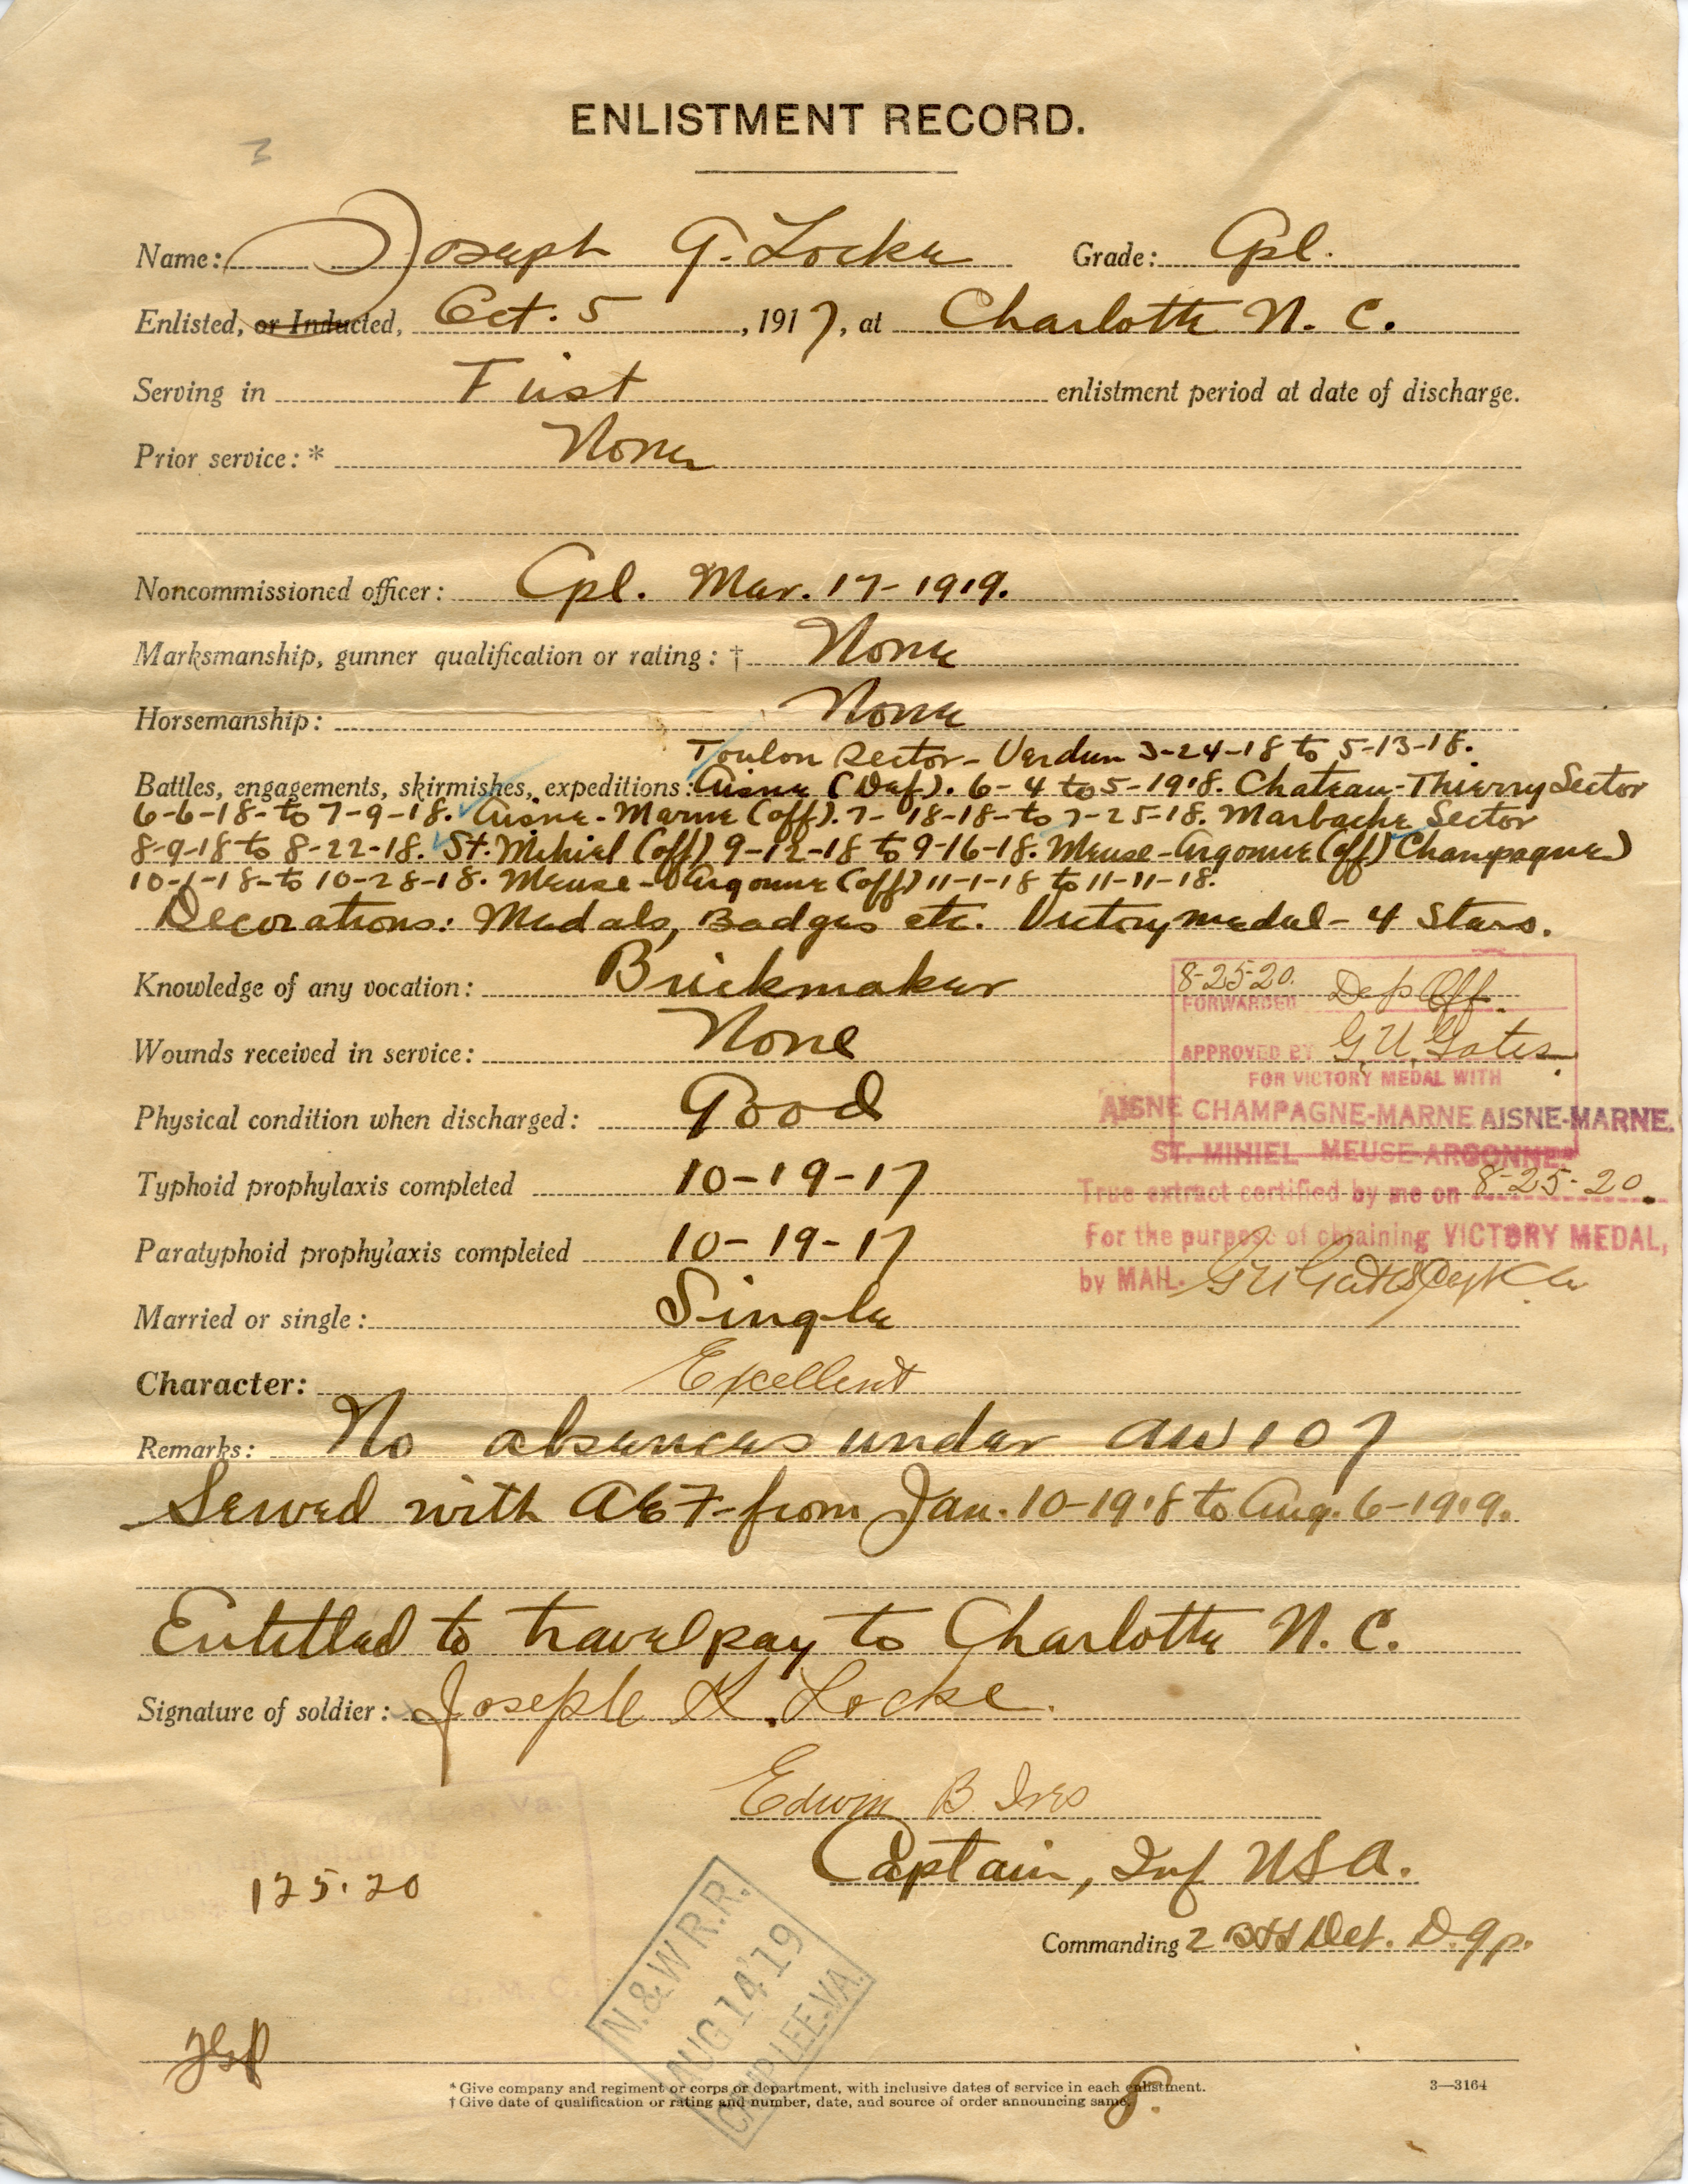 ENLISTMENT RECORD.
3
Name: Joseph G. Locke Grade: Cpl.
Enlisted, or Inducted, Oct. 5, 1917, at Charlotte N. C.
Serving in First enlistment period at date of discharge.
Prior service: * None
Noncommissioned officer: Cpl. Mar. 17-1919.
Marksmanship, gunner qualification or rating: † None
Horsemanship: None
Toulon Sector - Verdun 3-24-18 to 5-13-18.
Battles, engagements, skirmishes, expeditions: Aisne (Def). 6-4 to 5-1918. Chateau-Thierry Sector
6-6-18-to 7-9-18. Aisne-Marne (off). 7-18-18-to 7-25-18. Marbache Sector
8-9-18 to 8-22-18. St. Mihiel (off) 9-12-18 to 9-16-18. Meuse-Argonne (off) Champagne)
10-1-18-to 10-28-18. Meuse-Argonne (off) 11-1-18 to 11-11-18.
Decorations: Medals, Badges etc. Victory medal - 4 Stars.
Knowledge of any vocation: Brickmaker
Wounds received in service: None
Physical condition when discharged: Good
Typhoid prophylaxis completed 10-19-17
Paratyphoid prophylaxis completed 10-19-17
Married or single: Single
8-25-20.
FORWARDED Dep Off.
APPROVED BY G. U. Gates
FOR VICTORY MEDAL WITH
AISNE CHAMPAGNE-MARNE AISNE-MARNE.
ST. MIHIEL MEUSE-ARGONNE
True extract certified by me on 8-25-20.
For the purpose of obtaining VICTORY MEDAL,
by MAIL. G U Gates
Character: Excellent
Remarks: No absences under AW 107
Served with AEF from Jan. 10-1918 to Aug. 6-1919.
Entitled to travel pay to Charlotte N. C.
Signature of soldier: Joseph K. Locke.
Edwin B Ives
Captain, Inf USA.
Commanding 2 Det. D.
125.20
Lee, Va.
Q. M. C.
N. & W R.R.
AUG 14 '19
CAMP LEE, VA.
* Give company and regiment or corps or department, with inclusive dates of service in each enlistment.
† Give date of qualification or rating and number, date, and source of order announcing same.
3—3164